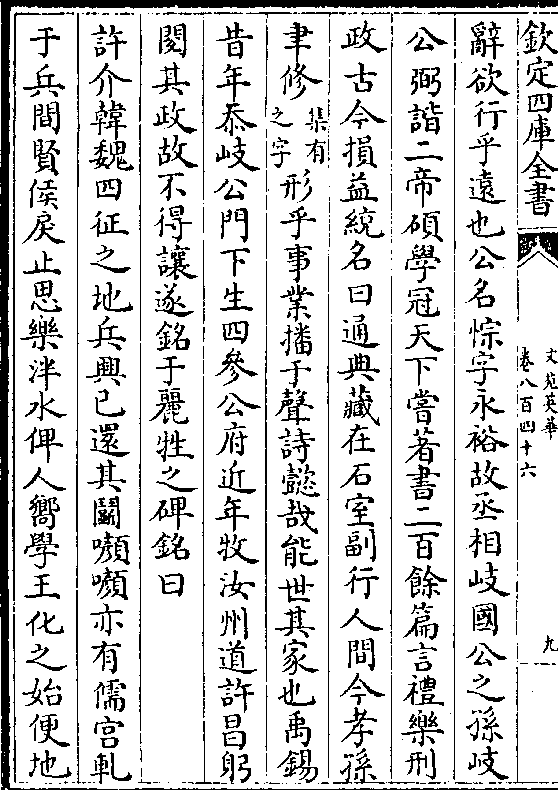 欽定四庫全書
文苑英華
卷八百四十六
九
辭欲行乎遠也公名悰字永裕故丞相岐國公之孫岐
公弼諧二帝碩學冠天下嘗著書二百餘篇言禮樂刑
政古今損益統名曰通典藏在石室副行人間今孝孫
聿修集有之字形乎事業播于聲詩懿哉能世其家也禹錫
昔年忝岐公門下生四參公府近年牧汝州道許昌躬
閱其政故不得讓遂銘于麗牲之碑銘曰
許介韓魏四征之地兵興已還其鬭嚬嚬亦有儒宫軋
于兵間賢侯戾止思樂泮水俾人嚮學王化之始便地